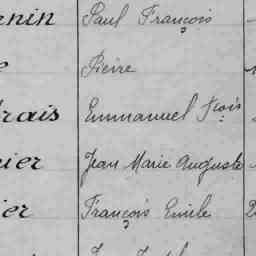 nin Paul François
e Pierre
rais Emmanuel Fçois
ier Jean Marie Auguste
ier François Emile